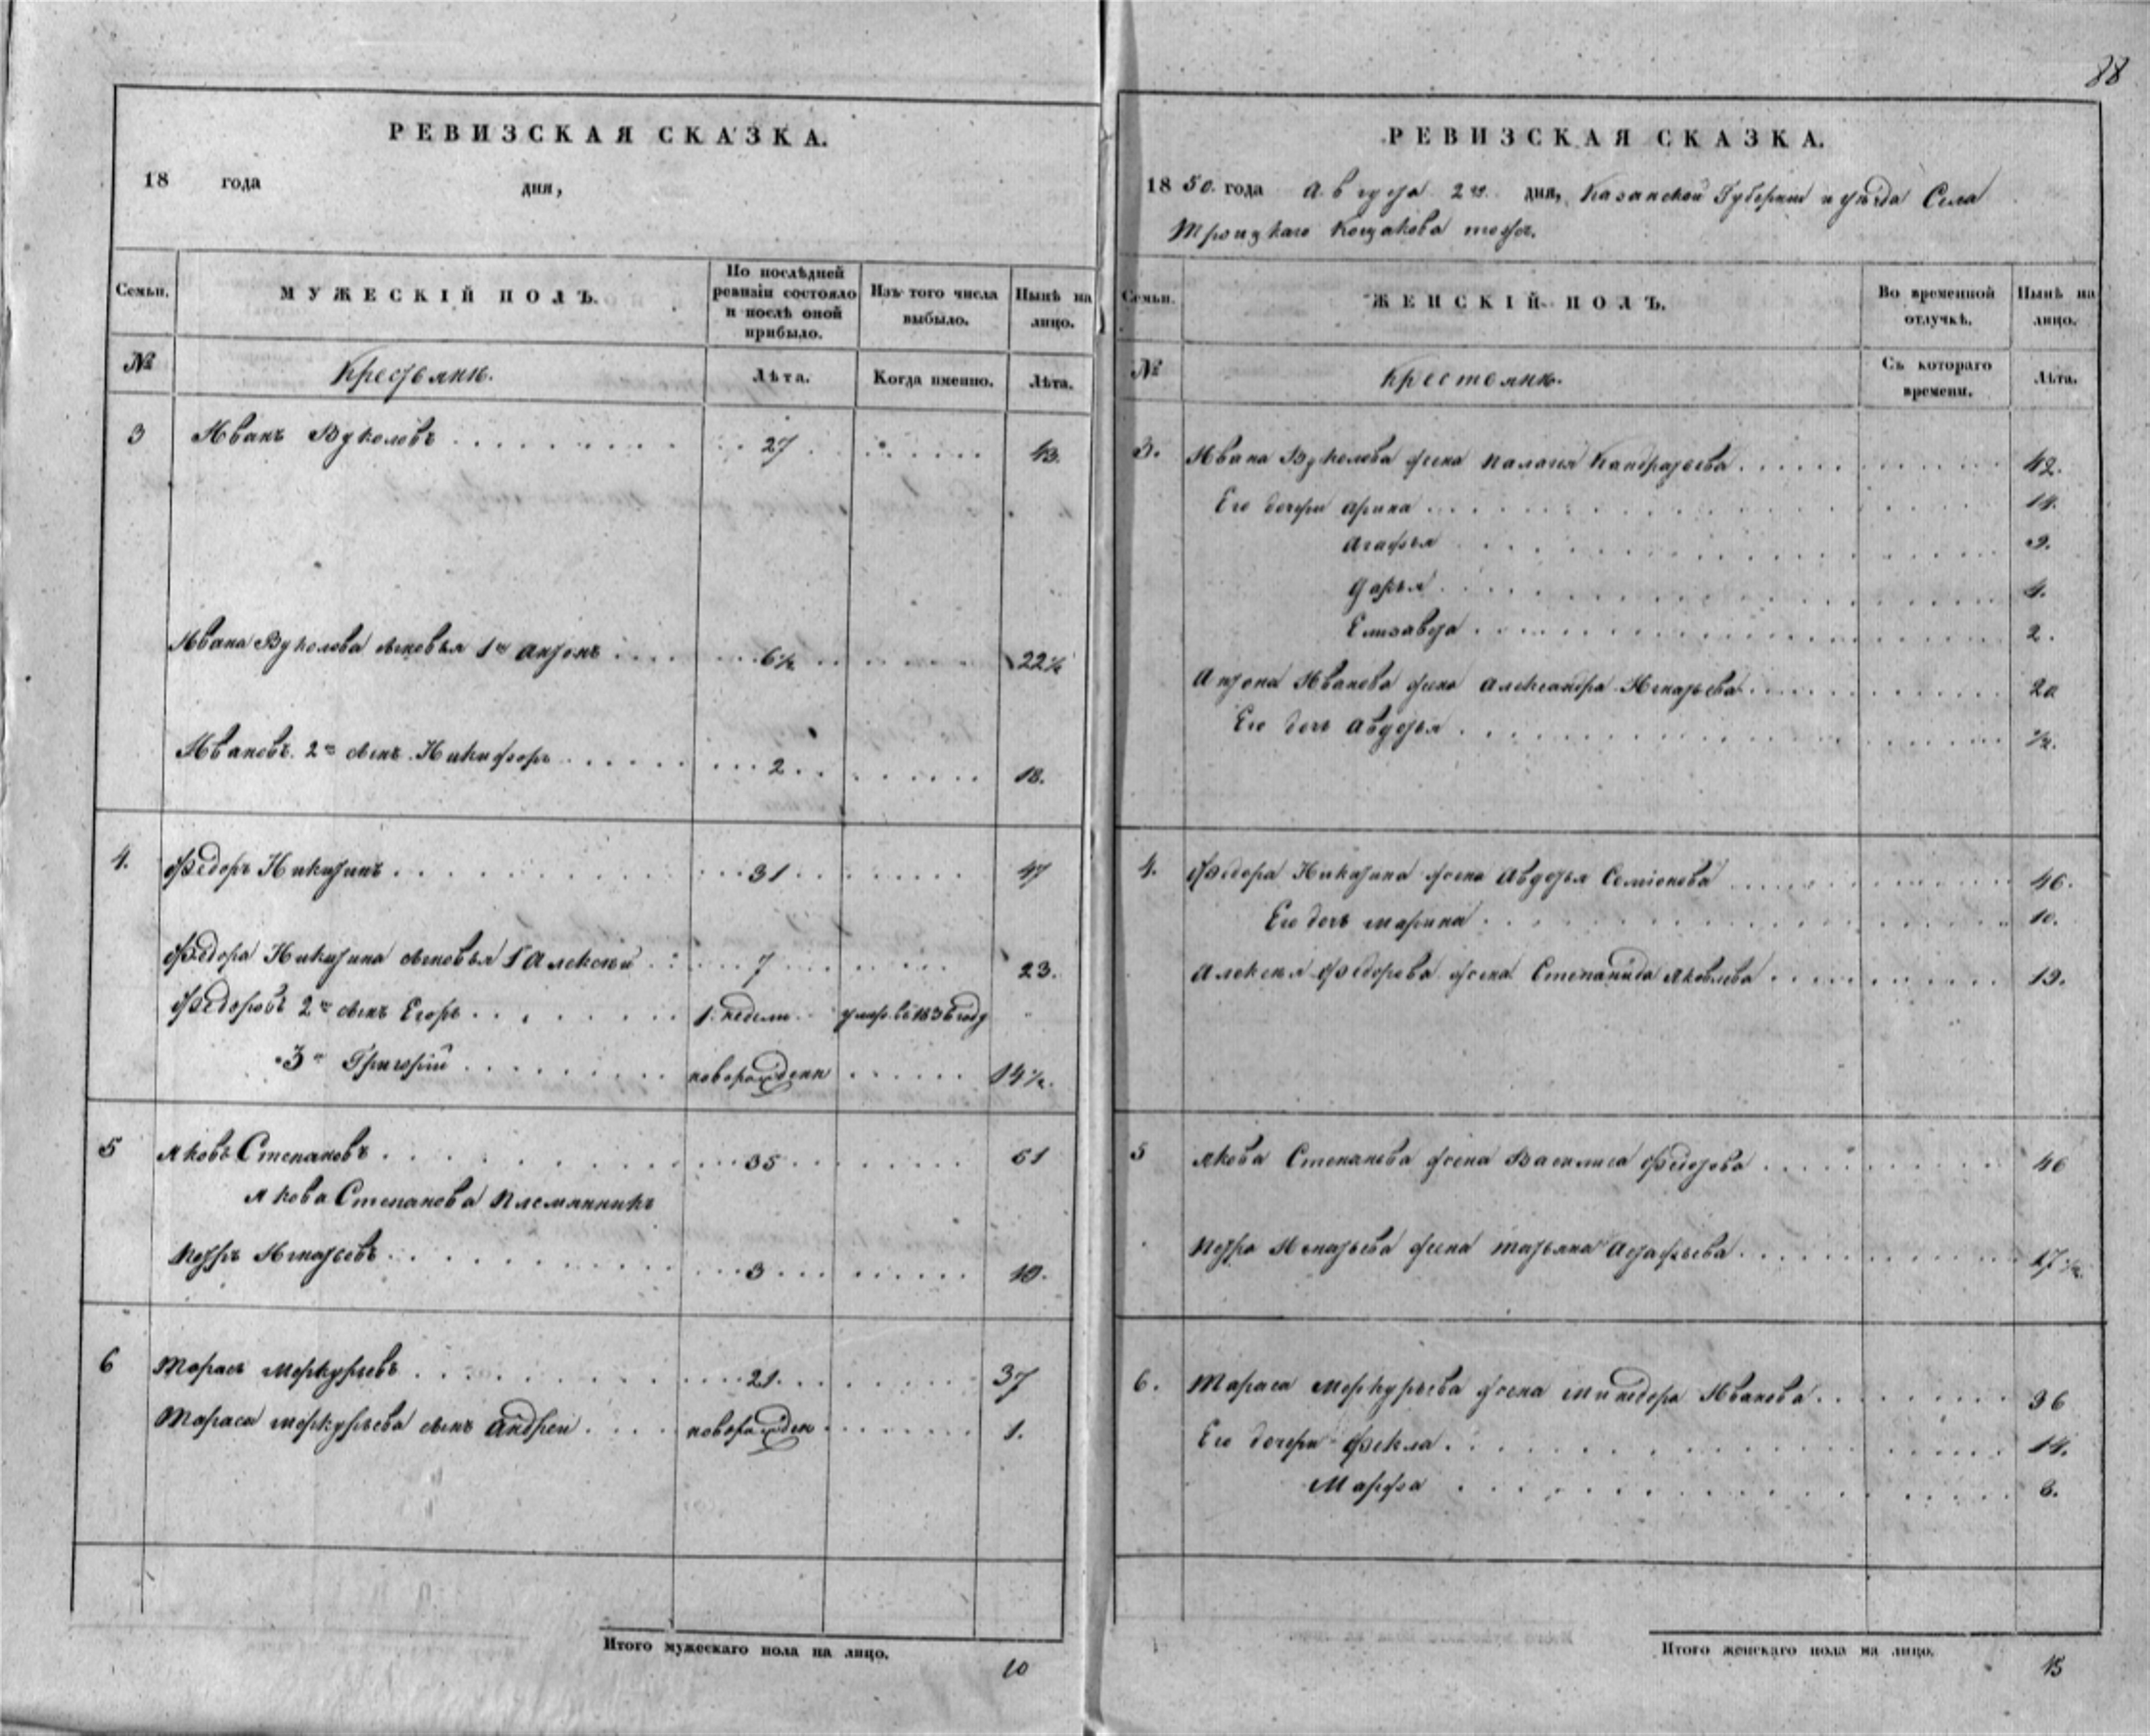 РЕВИЗСКАЯ СКАЗКА.
18 года дня,
Семьи. МУЖЕСКІЙ ПОЛЪ. По послѣдней ревизіи состояло и послѣ оной прибыло. Изъ того числа выбыло. Нынѣ на лицо.
№ Крестьяне. Лѣта. Когда именно. Лѣта.
3 Иванъ Вуколовъ 27 43
Ивана Вуколова сыновья 1й Антонъ 6½ 22½
Ивановъ 2й сынъ Никифоръ 2 18.
4. Федоръ Никитинъ 31 47
Федора Никитина сыновья 1 Алексѣй 7 23.
Федоровъ 2й сынъ Егоръ 1 недели умеръ въ 1836 году
3й Григорій новорожденн 14½.
5 Яковъ Степановъ 35 51
Якова Степанова племянникъ
Петръ Игнатьевъ 3 19.
6 Тарасъ Меркурьевъ 21. 37
Тараса Меркурьева сынъ Андрей новорожден 1.
Итого мужескаго пола на лицо. 10
88
РЕВИЗСКАЯ СКАЗКА.
1850. года Августа 2го дня, Казанской Губерніи и уѣзда Села
Троицкаго Кощакова тожъ.
Семьи. ЖЕНСКІЙ ПОЛЪ. Во временной отлучкѣ. Нынѣ на лицо.
№ Крестьяне. Съ котораго времени. Лѣта.
3. Ивана Вуколова жена Палагея Кандратьева 42.
Его дочери Арина 14.
Агафья 9.
Дарья 4.
Елизавета 2.
Антона Иванова жена Александра Игнатьева 20
Его дочь Авдотья ½.
4. Федора Никитина жена Авдотья Семіонова 46.
Его дочь Марина 10.
Алексея Федорова жена Степанида Яковлева 19.
5 Якова Степанова жена Василиса Федотова 46
Петра Игнатьева жена Татьяна Астафьева 17½.
6. Тараса Меркурьева жена Минодора Иванова 36
Его дочери Фекла 14.
Марфа 8.
Итого женскаго пола на лицо. 15